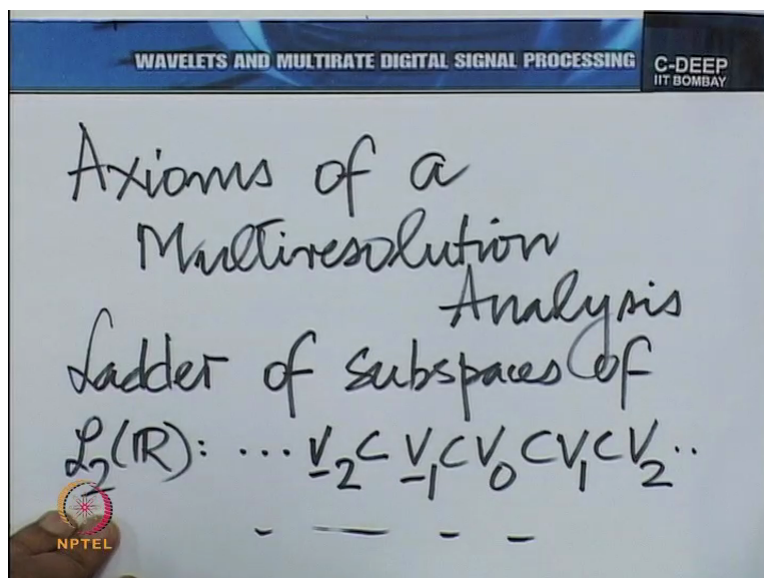 WAVELETS AND MULTIRATE DIGITAL SIGNAL PROCESSING
C-DEEP
IIT BOMBAY
Axioms of a
Multiresolution
Analysis
Ladder of subspaces of
L₂(ℝ): ... V₋₂ ⊂ V₋₁ ⊂ V₀ ⊂ V₁ ⊂ V₂ ..
NPTEL